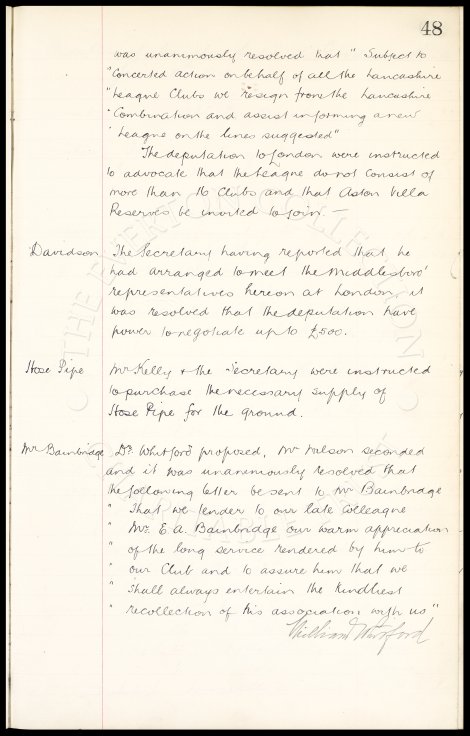 48
was unanimously resolved that " Subject to
"Concerted action on behalf of all the Lancashire
"League Clubs we resign from the Lancashire
"Combination and assist in forming a new
"League on the lines suggested"
The deputation to London were instructed
to advocate that the League do not consist of
more than 16 Clubs and that Aston Villa
Reserves be invited to join. —
Davidson The Secretary having reported that he
had arranged to meet the Middlesboro'
representatives hereon at London, it
was resolved that the deputation have
power to negotiate up to £500.
Hose Pipe Mr Kelly & the Secretary were instructed
to purchase the necessary supply of
Hose Pipe for the ground.
Mr Bainbridge Dr Whitford proposed, Mr Wilson seconded
and it was unanimously resolved that
the following letter be sent to Mr Bainbridge
" That we tender to our late Colleague
" Mr. E. A. Bainbridge our warm appreciation
" of the long service rendered by him to
" our Club and to assure him that we
" shall always entertain the kindliest
" recollection of his association with us"
William Whitford
THE EVERTON COLLECTION